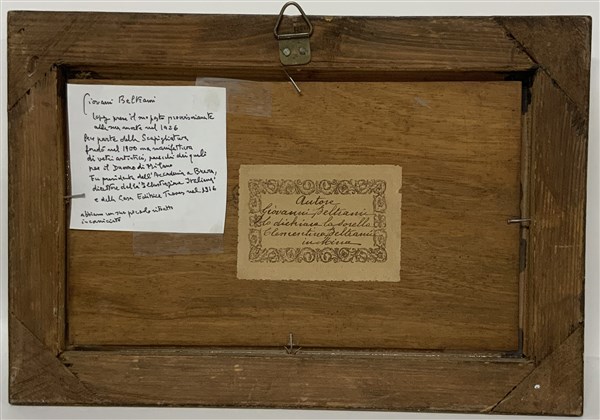 Giovanni Beltrami
prese il suo posto provvisoriamente
alla sua morte nel 1926
Fece parte della Scapigliatura
fondò nel 1900 una manifattura
di vetri artistici, parecchi dei quali
per il Duomo di Milano
Fu presidente dell'Accademia a Brera,
direttore della "Illustrazione Italiana"
e della Casa Editrice Treves nel 1916
abbiamo un suo piccolo ritratto
incorniciato
Autore
Giovanni Beltrami
Lo dichiara la sorella
Clementina Beltrami
in